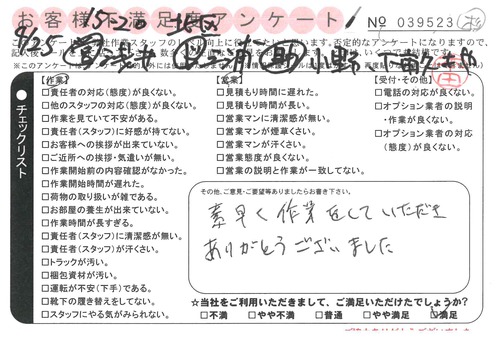 お客様不満足度アンケート
No 039523
9/25
15-20
【作業】
□責任者の対応(態度)が良くない。
□他のスタッフの対応(態度)が良くない。
□作業を見ていて不安がある。
□責任者(スタッフ)に好感が持てない。
□お客様への挨拶が出来ていない。
□ご近所への挨拶・気遣いが無い。
□作業開始前の内容確認がなかった。
□作業開始時間が遅れた。
□荷物の取り扱いが雑である。
□お部屋の養生が出来ていない。
□作業時間が長すぎる。
□責任者(スタッフ)に清潔感が無い。
□責任者(スタッフ)が汗くさい。
□トラックが汚い。
□梱包資材が汚い。
□運転が不安(下手)である。
□靴下の履き替えをしてない。
□スタッフにやる気がみられない。
【営業】
□見積もり時間に遅れた。
□見積もり時間が長い。
□営業マンに清潔感が無い。
□営業マンが煙草くさい。
□営業マンが汗くさい。
□営業態度が良くない。
□営業の説明と作業が一致してない。
【受付・その他】
□電話の対応が良くない。
□オプション業者の説明
・作業が良くない。
□オプション業者の対応
(態度)が良くない。
チェックリスト
その他、ご意見・ご要望等ありましたらお書き下さい。
素早く作業をしていただき
ありがとうございました
☆当社をご利用いただきまして、ご満足いただけたでしょうか?
□不満 □やや不満 □普通 □やや満足 □満足